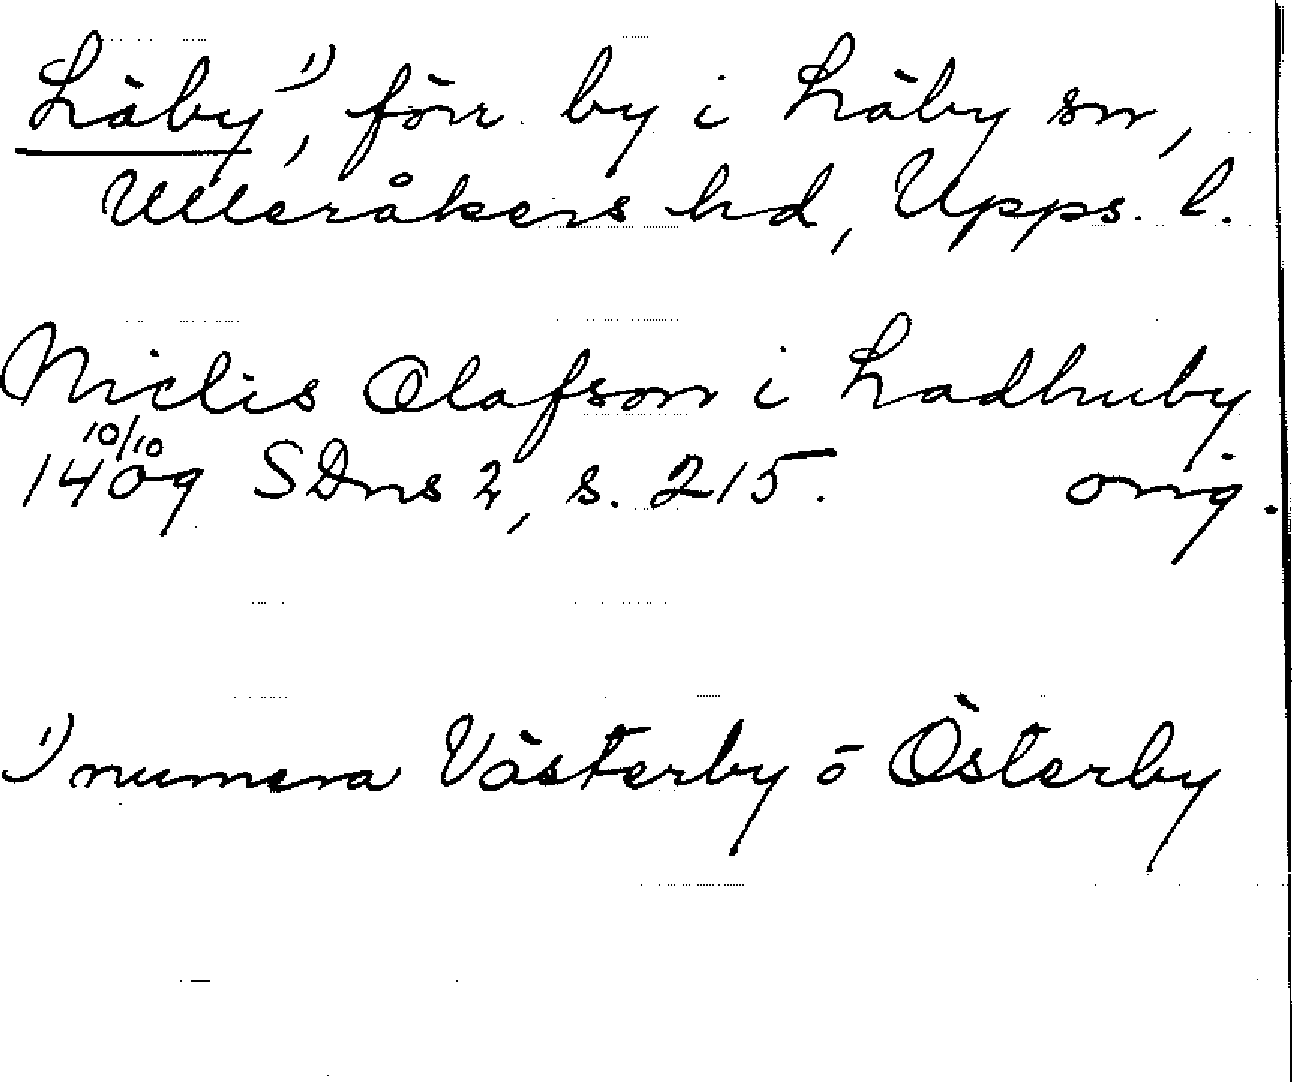 Läby 1), förr by i Läby sn,
Ulleråkers hd, Upps. l.
Niclis Olafson i Ladhuby
10/10
1409 SDns 2, s. 215. orig.
1) numera Västerby o Österby